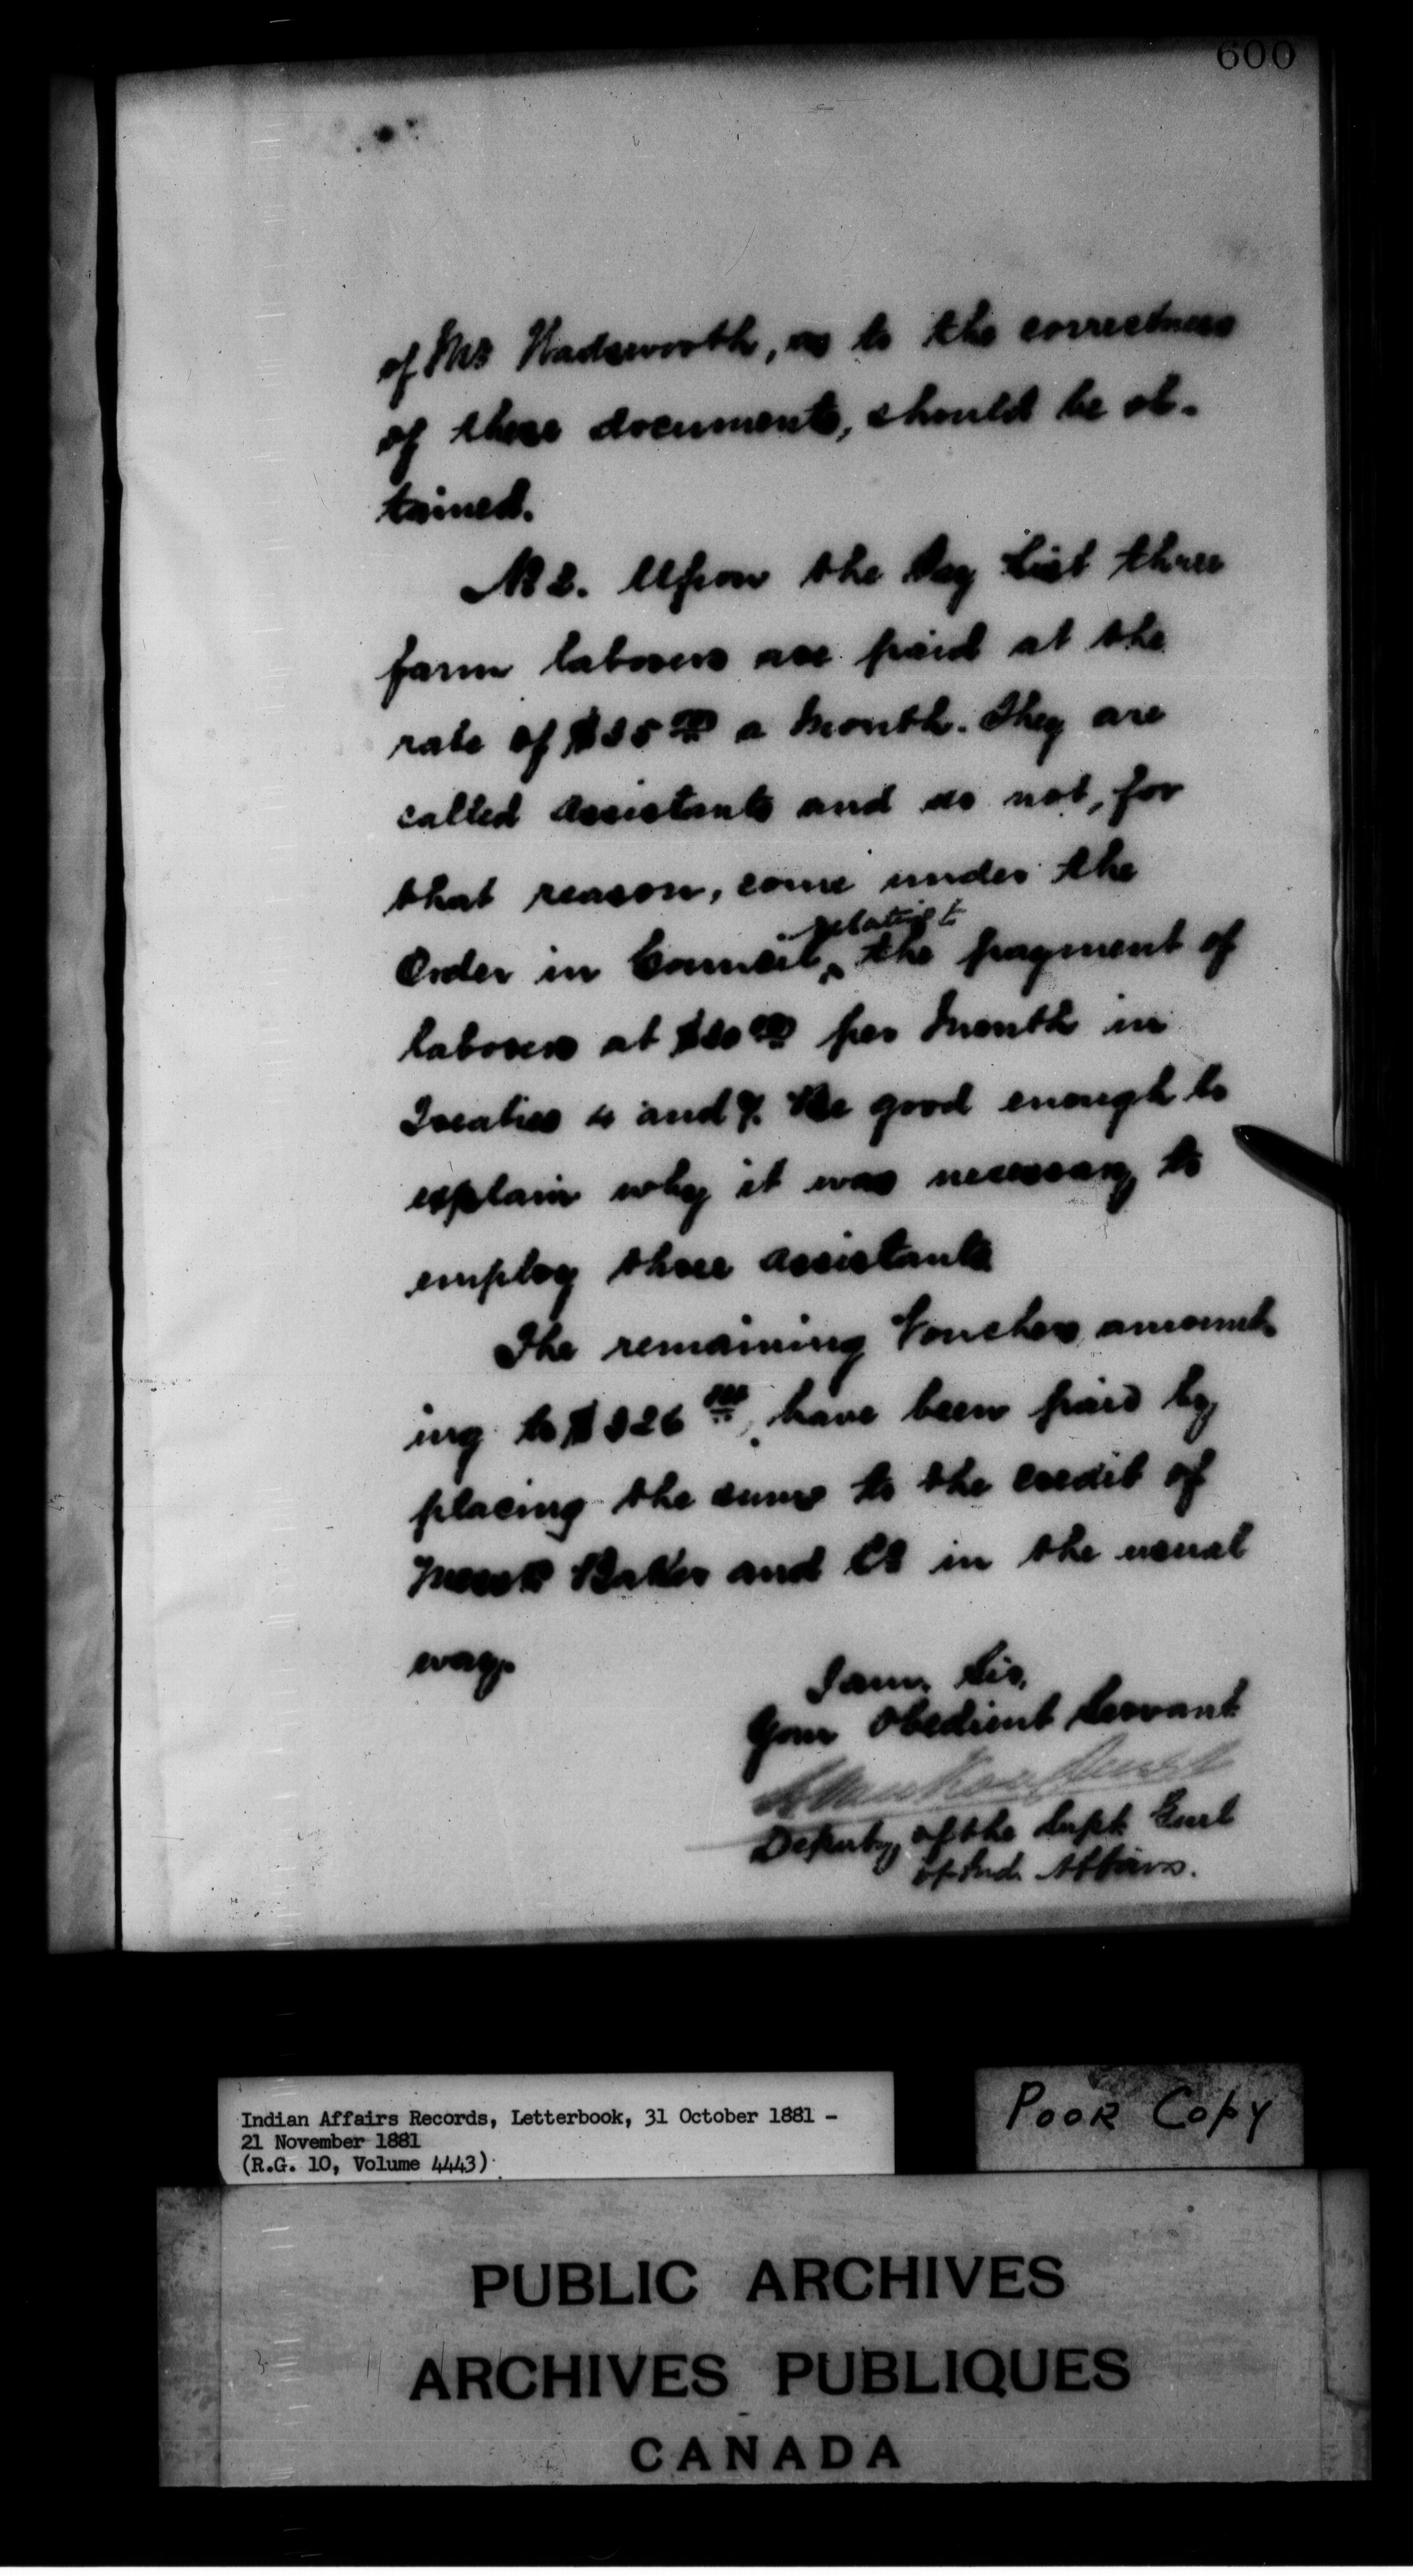 600
of Mr Wadsworth, as to the correctness
of these documents, should be ob-
tained.
No 2. Upon the Pay List three
farm laborers are paid at the
rate of a month. They are
called Assistants and do not, for
that reason, come under the
relative to
Order in Council, the payment of
laborers at per month in
Treaties 4 and 7. Be good enough to
explain why it was necessary to
employ three assistants
The remaining Vouchers amount-
ing to have been paid by
placing the sums to the credit of
Messrs Baker and Co in the usual
way.
I am, Sir,
Your Obedient Servant
Deputy of the Supt Genl
of Ind. Affairs.
Indian Affairs Records, Letterbook, 31 October 1881 -
21 November 1881
(R.G. 10, Volume 4443)
Poor Copy
PUBLIC ARCHIVES
ARCHIVES PUBLIQUES
CANADA